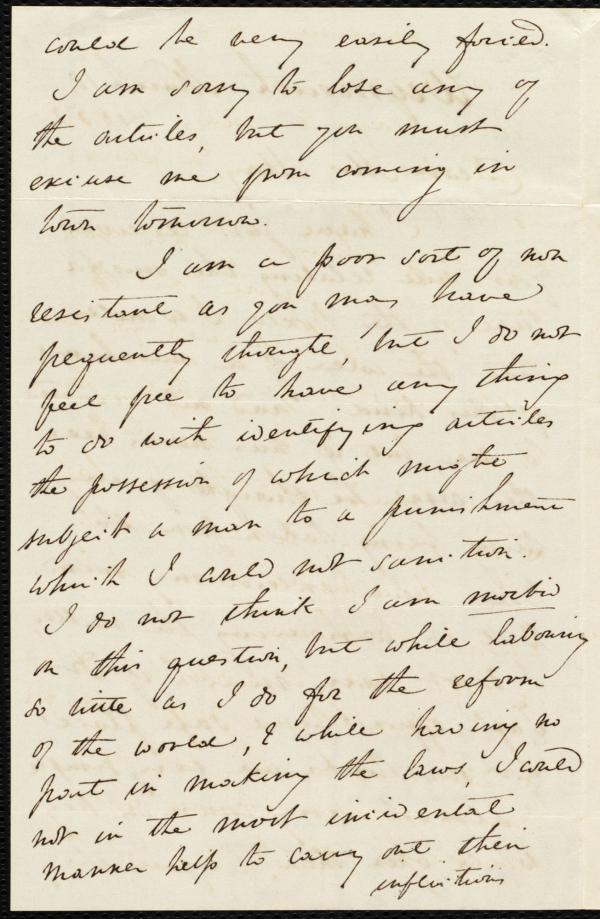 could be very easily forced.
I am sorry to lose any of
the articles, but you must
excuse me from coming in
town tomorrow.
I am a poor sort of non
resistant as you may have
frequently thought, but I do not
feel free to have any thing
to do with identifying articles
the possession of which might
subject a man to a punishment
which I could not sanction.
I do not think I am morbid
on this question, but while labouring
so little as I do for the reform
of the world, & while having no
part in making the laws, I could
not in the most incidental
manner help to carry out their
inflictions